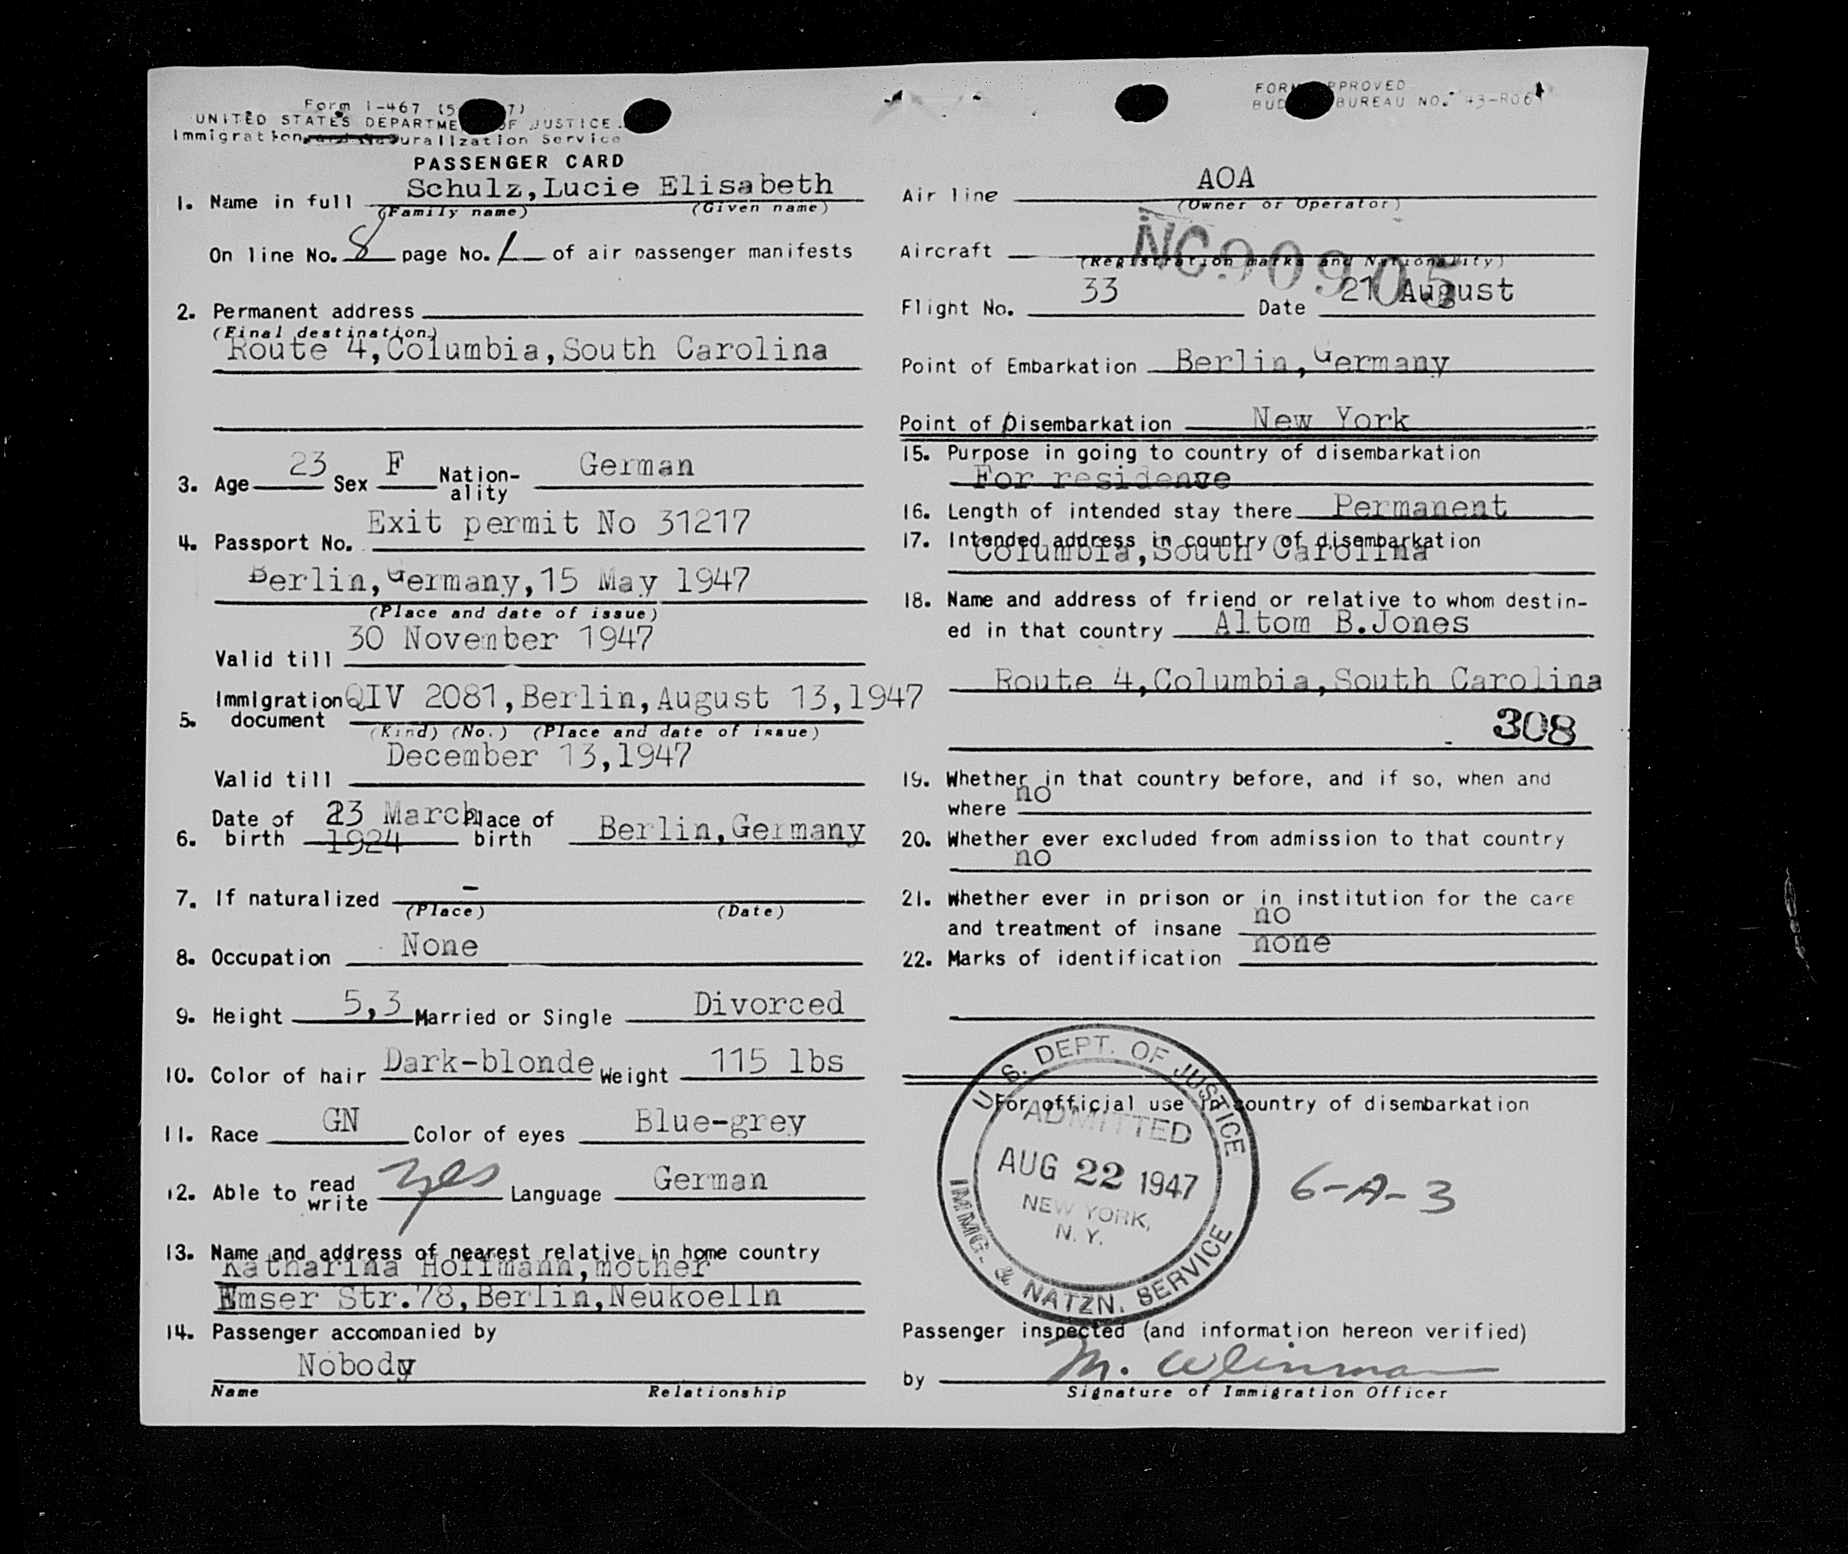 Form I-467 (5 7)
UNITED STATES DEPARTME OF JUSTICE
Immigration and Naturalization Service
PASSENGER CARD
1. Name in full Schulz,Lucie Elisabeth
(Family name) (Given name)
On line No. 8 page No. 1 of air passenger manifests
2. Permanent address
(Final destination)
Route 4,Columbia,South Carolina
3. Age 23 Sex F Nation-ality German
4. Passport No. Exit permit No 31217
Berlin,Germany,15 May 1947
(Place and date of issue)
Valid till 30 November 1947
5. Immigration document QIV 2081,Berlin,August 13,1947
(Kind) (No.) (Place and date of issue)
Valid till December 13,1947
6. Date of birth 23 March 1924 Place of birth Berlin,Germany
7. If naturalized –
(Place) (Date)
8. Occupation None
9. Height 5,3 Married or Single Divorced
10. Color of hair Dark-blonde Weight 115 lbs
11. Race GN Color of eyes Blue-grey
12. Able to read write yes Language German
13. Name and address of nearest relative in home country
Katharina Hoffmann,mother
Emser Str.78,Berlin,Neukoelln
14. Passenger accompanied by
Nobody
Name Relationship
FORM APPROVED
BUD BUREAU NO. 43-R06
Air line AOA
(Owner or Operator)
Aircraft NC90905
(Registration marks and Nationality)
Flight No. 33 Date 21 August
Point of Embarkation Berlin,Germany
Point of Disembarkation New York
15. Purpose in going to country of disembarkation
For residenve
16. Length of intended stay there Permanent
17. Intended address in country of disembarkation
Columbia,South Carolina
18. Name and address of friend or relative to whom destin-
ed in that country Altom B.Jones
Route 4,Columbia,South Carolina
308
19. Whether in that country before, and if so, when and
where no
20. Whether ever excluded from admission to that country
no
21. Whether ever in prison or in institution for the care
and treatment of insane no
22. Marks of identification none
For official use in country of disembarkation
U. S. DEPT. OF JUSTICE
ADMITTED
AUG 22 1947
NEW YORK,
N. Y.
IMMG. & NATZN. SERVICE
6-A-3
Passenger inspected (and information hereon verified)
by M. Weinman
Signature of Immigration Officer